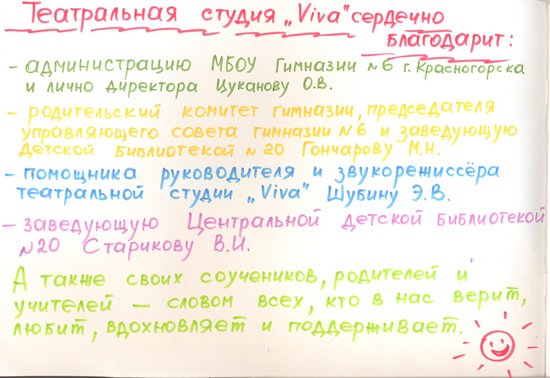 Театральная студия „Viva" сердечно
благодарит:
- администрацию МБОУ Гимназии №6 г. Красногорска
и лично директора Цуканову О.В.
- родительский комитет гимназии, председателя
управляющего совета гимназии №6 и заведующую
Детской Библиотекой №20 Гончарову М.Н.
- помощника руководителя и звукорежиссёра
театральной студии „Viva" Шубину Э.В.
- заведующую Центральной детской библиотекой
№20 Старикову В.И.
А также своих соучеников, родителей и
учителей — словом всех, кто в нас верит,
любит, вдохновляет и поддерживает.